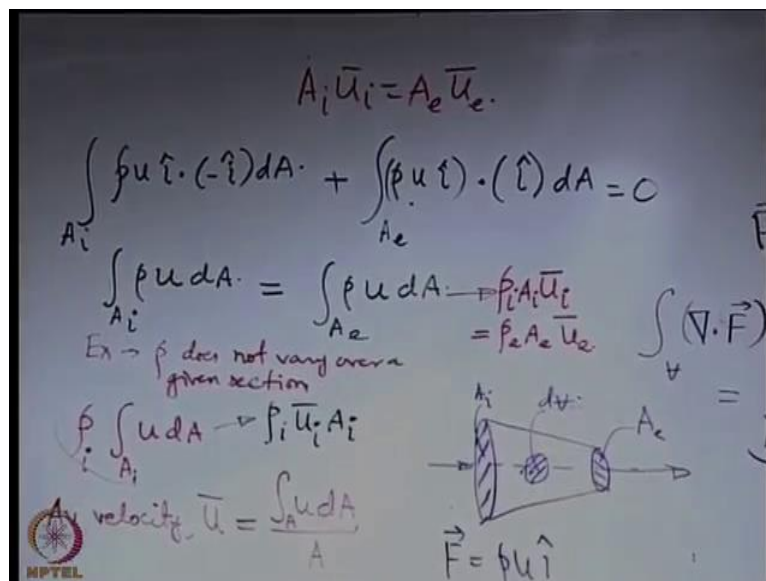 A_i ū_i = A_e ū_e.
∫_{A_i} ρu î · (-î) dA. + ∫_{A_e} (ρ u î) · (î) dA = 0
∫_{A_i} ρ u dA. = ∫_{A_e} ρ u dA. → ρ_i A_i ū_i
= ρ_e A_e ū_e.
Ex → ρ does not vary over a
given section
ρ_i ∫_{A_i} u dA → ρ_i ū_i A_i
Av velocity, ū = ∫_A u dA / A
∫_∀ (∇·F⃗)
=
A_i
d∀
A_e
F⃗ = ρu î
NPTEL